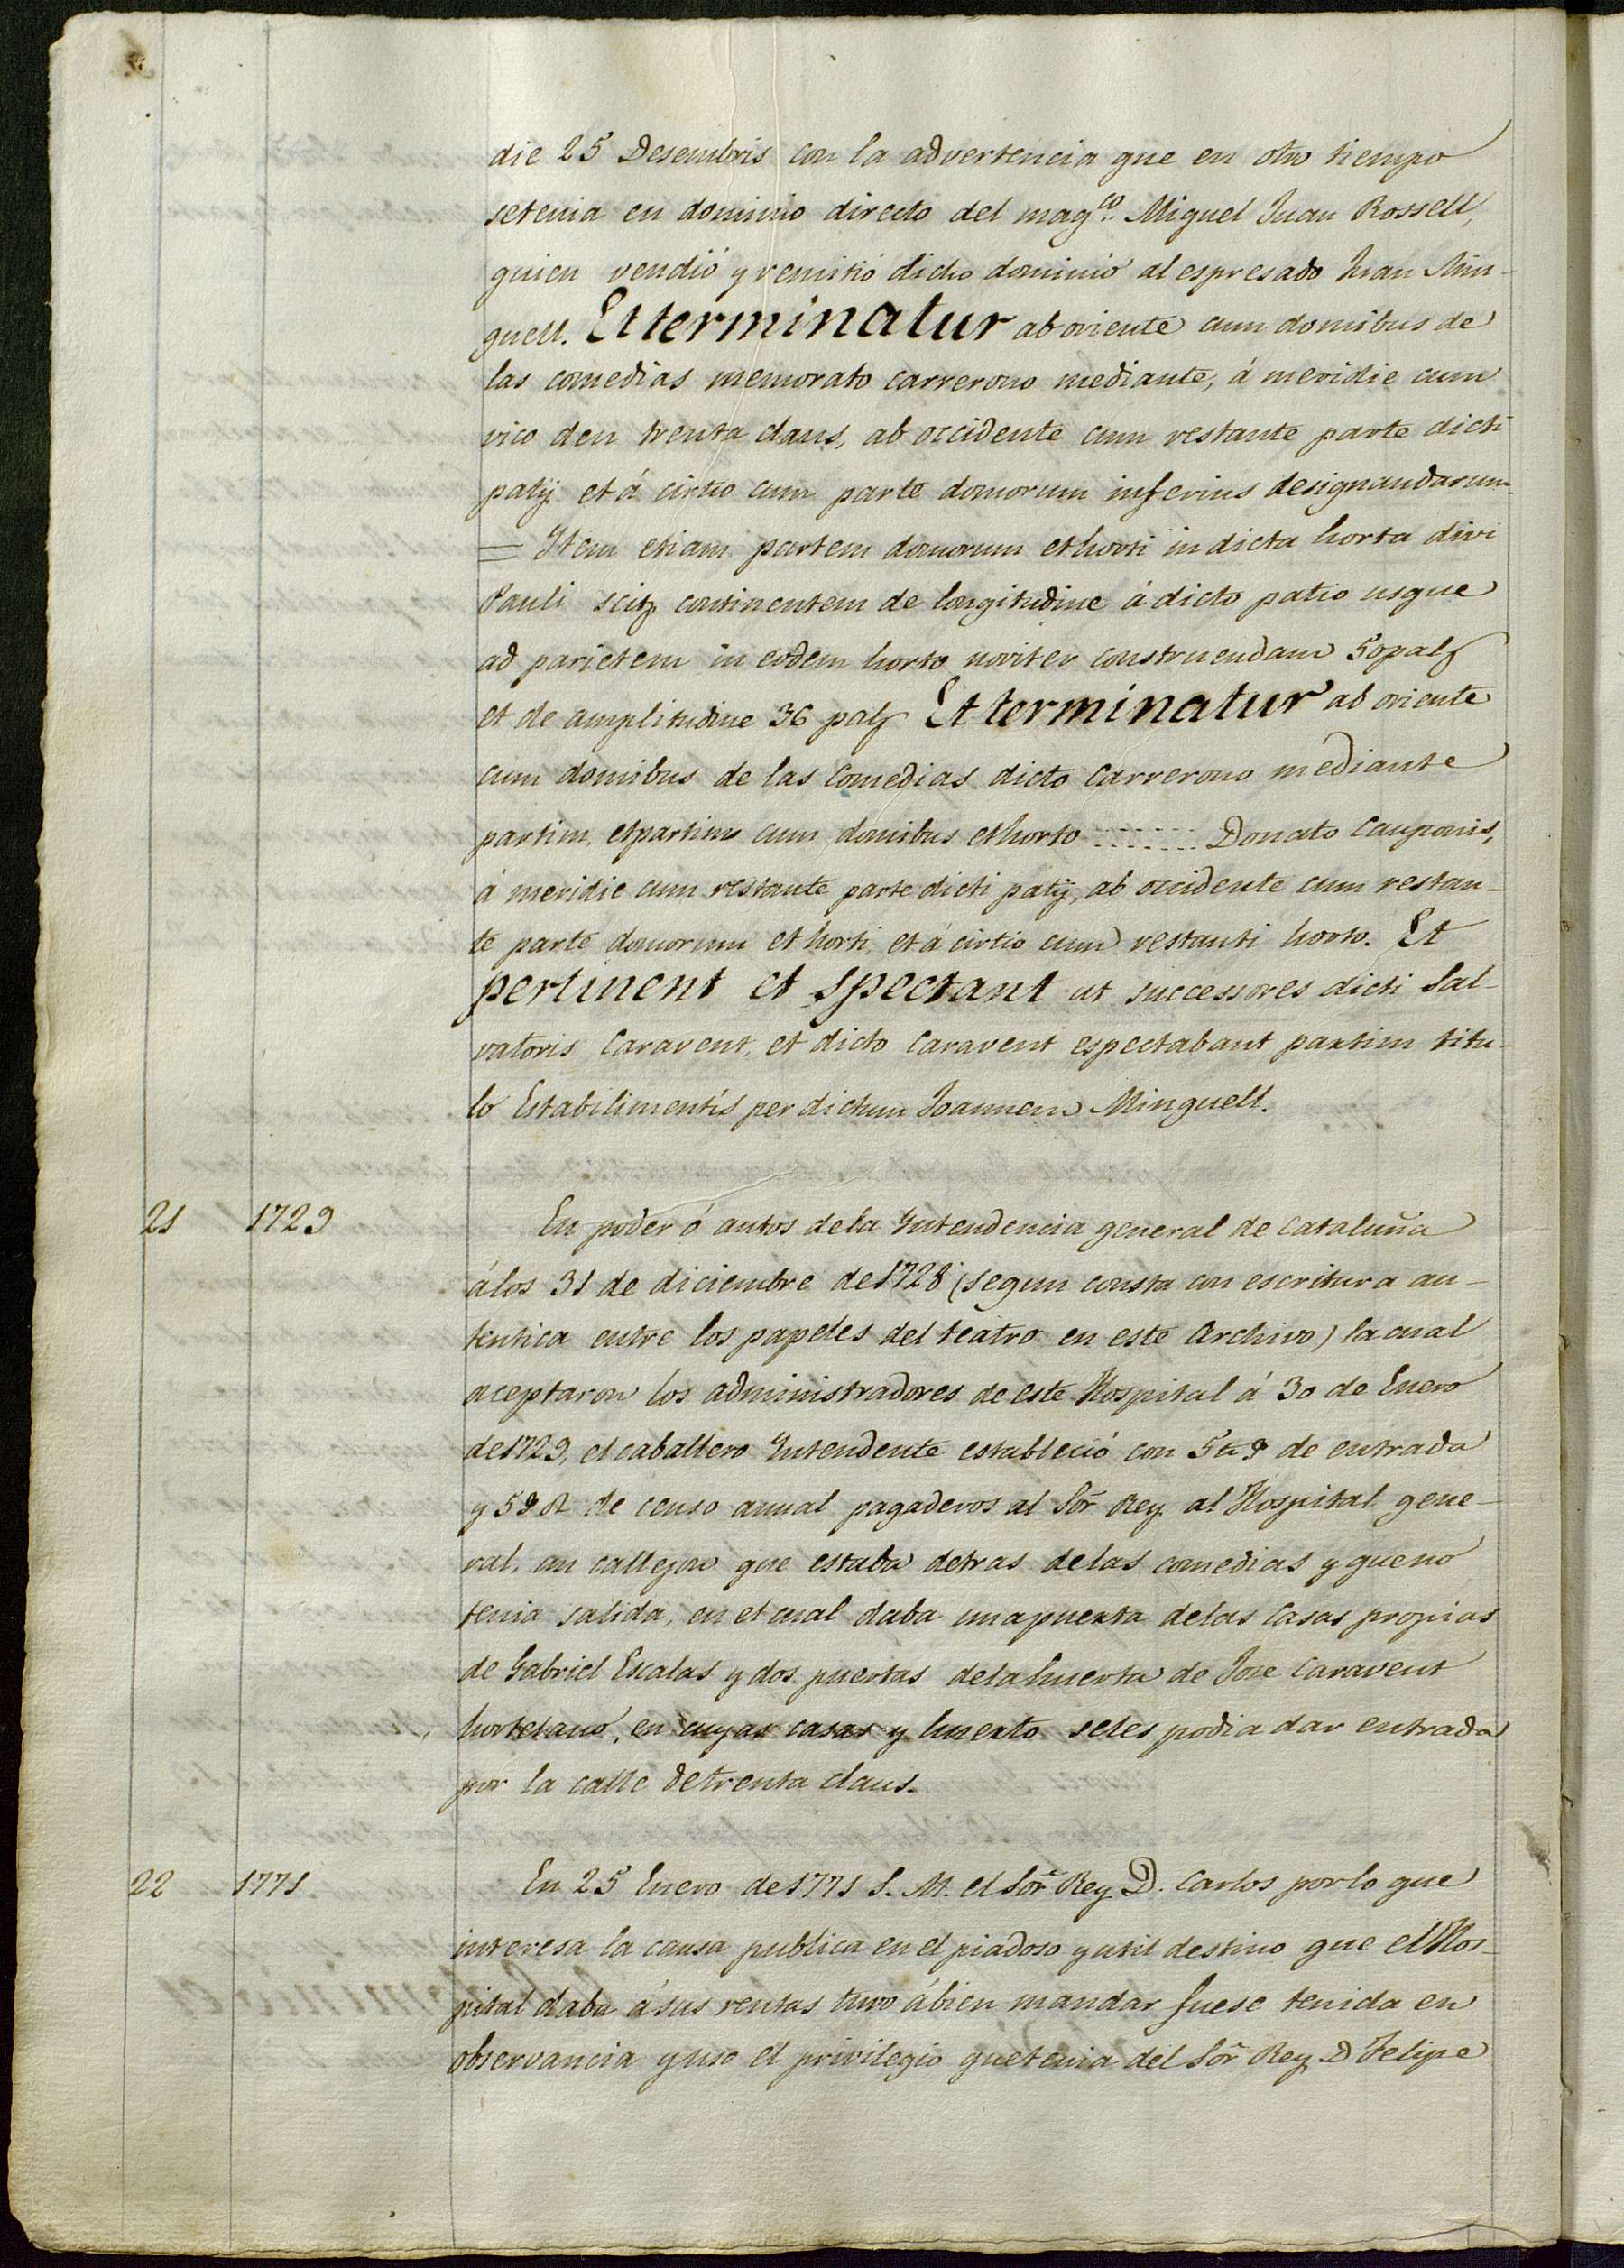 die 25 Desembris con la advertencia que en otro tiempo
setenia en dominio directo del mag.co Miguel Juan Rossell,
quien vendió y remitió dicho dominio al espresado Juan Min-
guell. Et terminatur ab oriente cum domibus de
las comedias memorato carrerono mediante, á meridie cum
vico den trenta claus, ab occidente cum restante parte dicti
patij et á cirtio cum parte domorum inferius designandarum
= Item etiam partem domorum et horti in dicta horta divi
Pauli scitz continentem de longitudine á dicto patio usque
ad parietem in eodem horto noviter construendam 50 palz
et de amplitudine 36 palz Et terminatur ab oriente
cum domibus de las comedias dicto carrerono mediante
partim, et partim cum domibus et horto ........ Donato Cauponis,
á meridie cum restante parte dicti patij, ab occidente cum restan-
te parte domorum et horti, et á cirtio cum restanti horto. Et
pertinent et spectant ut successores dicti Sal-
vatoris Caravent, et dicto Caravent espectabant partim titu-
lo Estabilimentis per dictum Joannem Minguell.
21 1729 En poder ó autos dela Intendencia general de Cataluña
álos 31 de diciembre de 1728 (segun consta con escritura au-
tentica entre los papeles del teatro en este Archivo) la cual
aceptaron los administradores de este Hospital á 30 de Enero
de 1729, el caballero Intendente estableció con de entrada
y de censo anual pagaderos al Sor̃ Rey al Hospital gene-
ral, un callejon que estaba detras delas comedias y que no
tenia salida, en el cual daba una puerta delas casas propias
de Gabriel Escalas y dos puertas dela huerta de Jose Caravent
hortelano, en cuyas casas y huerto seles podia dar entrada
por la calle de trenta claus.
22 1771 En 25 Enero de 1771 S. M. el Sor̃ Rey D. Carlos por lo que
interesa la causa publica en el piadoso y util destino que el Hos-
pital daba á sus rentas tuvo ábien mandar fuese tenida en
observancia y uso el privilegio que tenia del Sor̃ Rey D Felipe